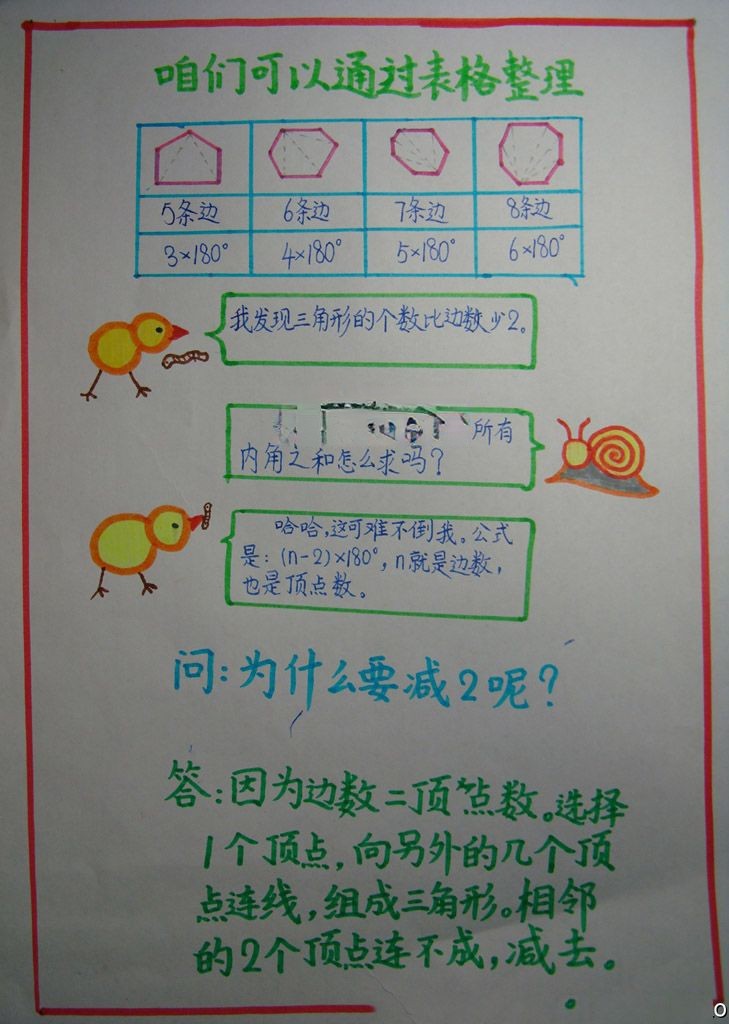 咱们可以通过表格整理
5条边 6条边 7条边 8条边
3×180° 4×180° 5×180° 6×180°
我发现三角形的个数比边数少2。
所有
内角之和怎么求吗？
哈哈，这可难不倒我。公式
是：(n-2)×180°，n就是边数，
也是顶点数。
问：为什么要减2呢？
答：因为边数=顶点数。选择
1个顶点，向另外的几个顶
点连线，组成三角形。相邻
的2个顶点连不成，减去。